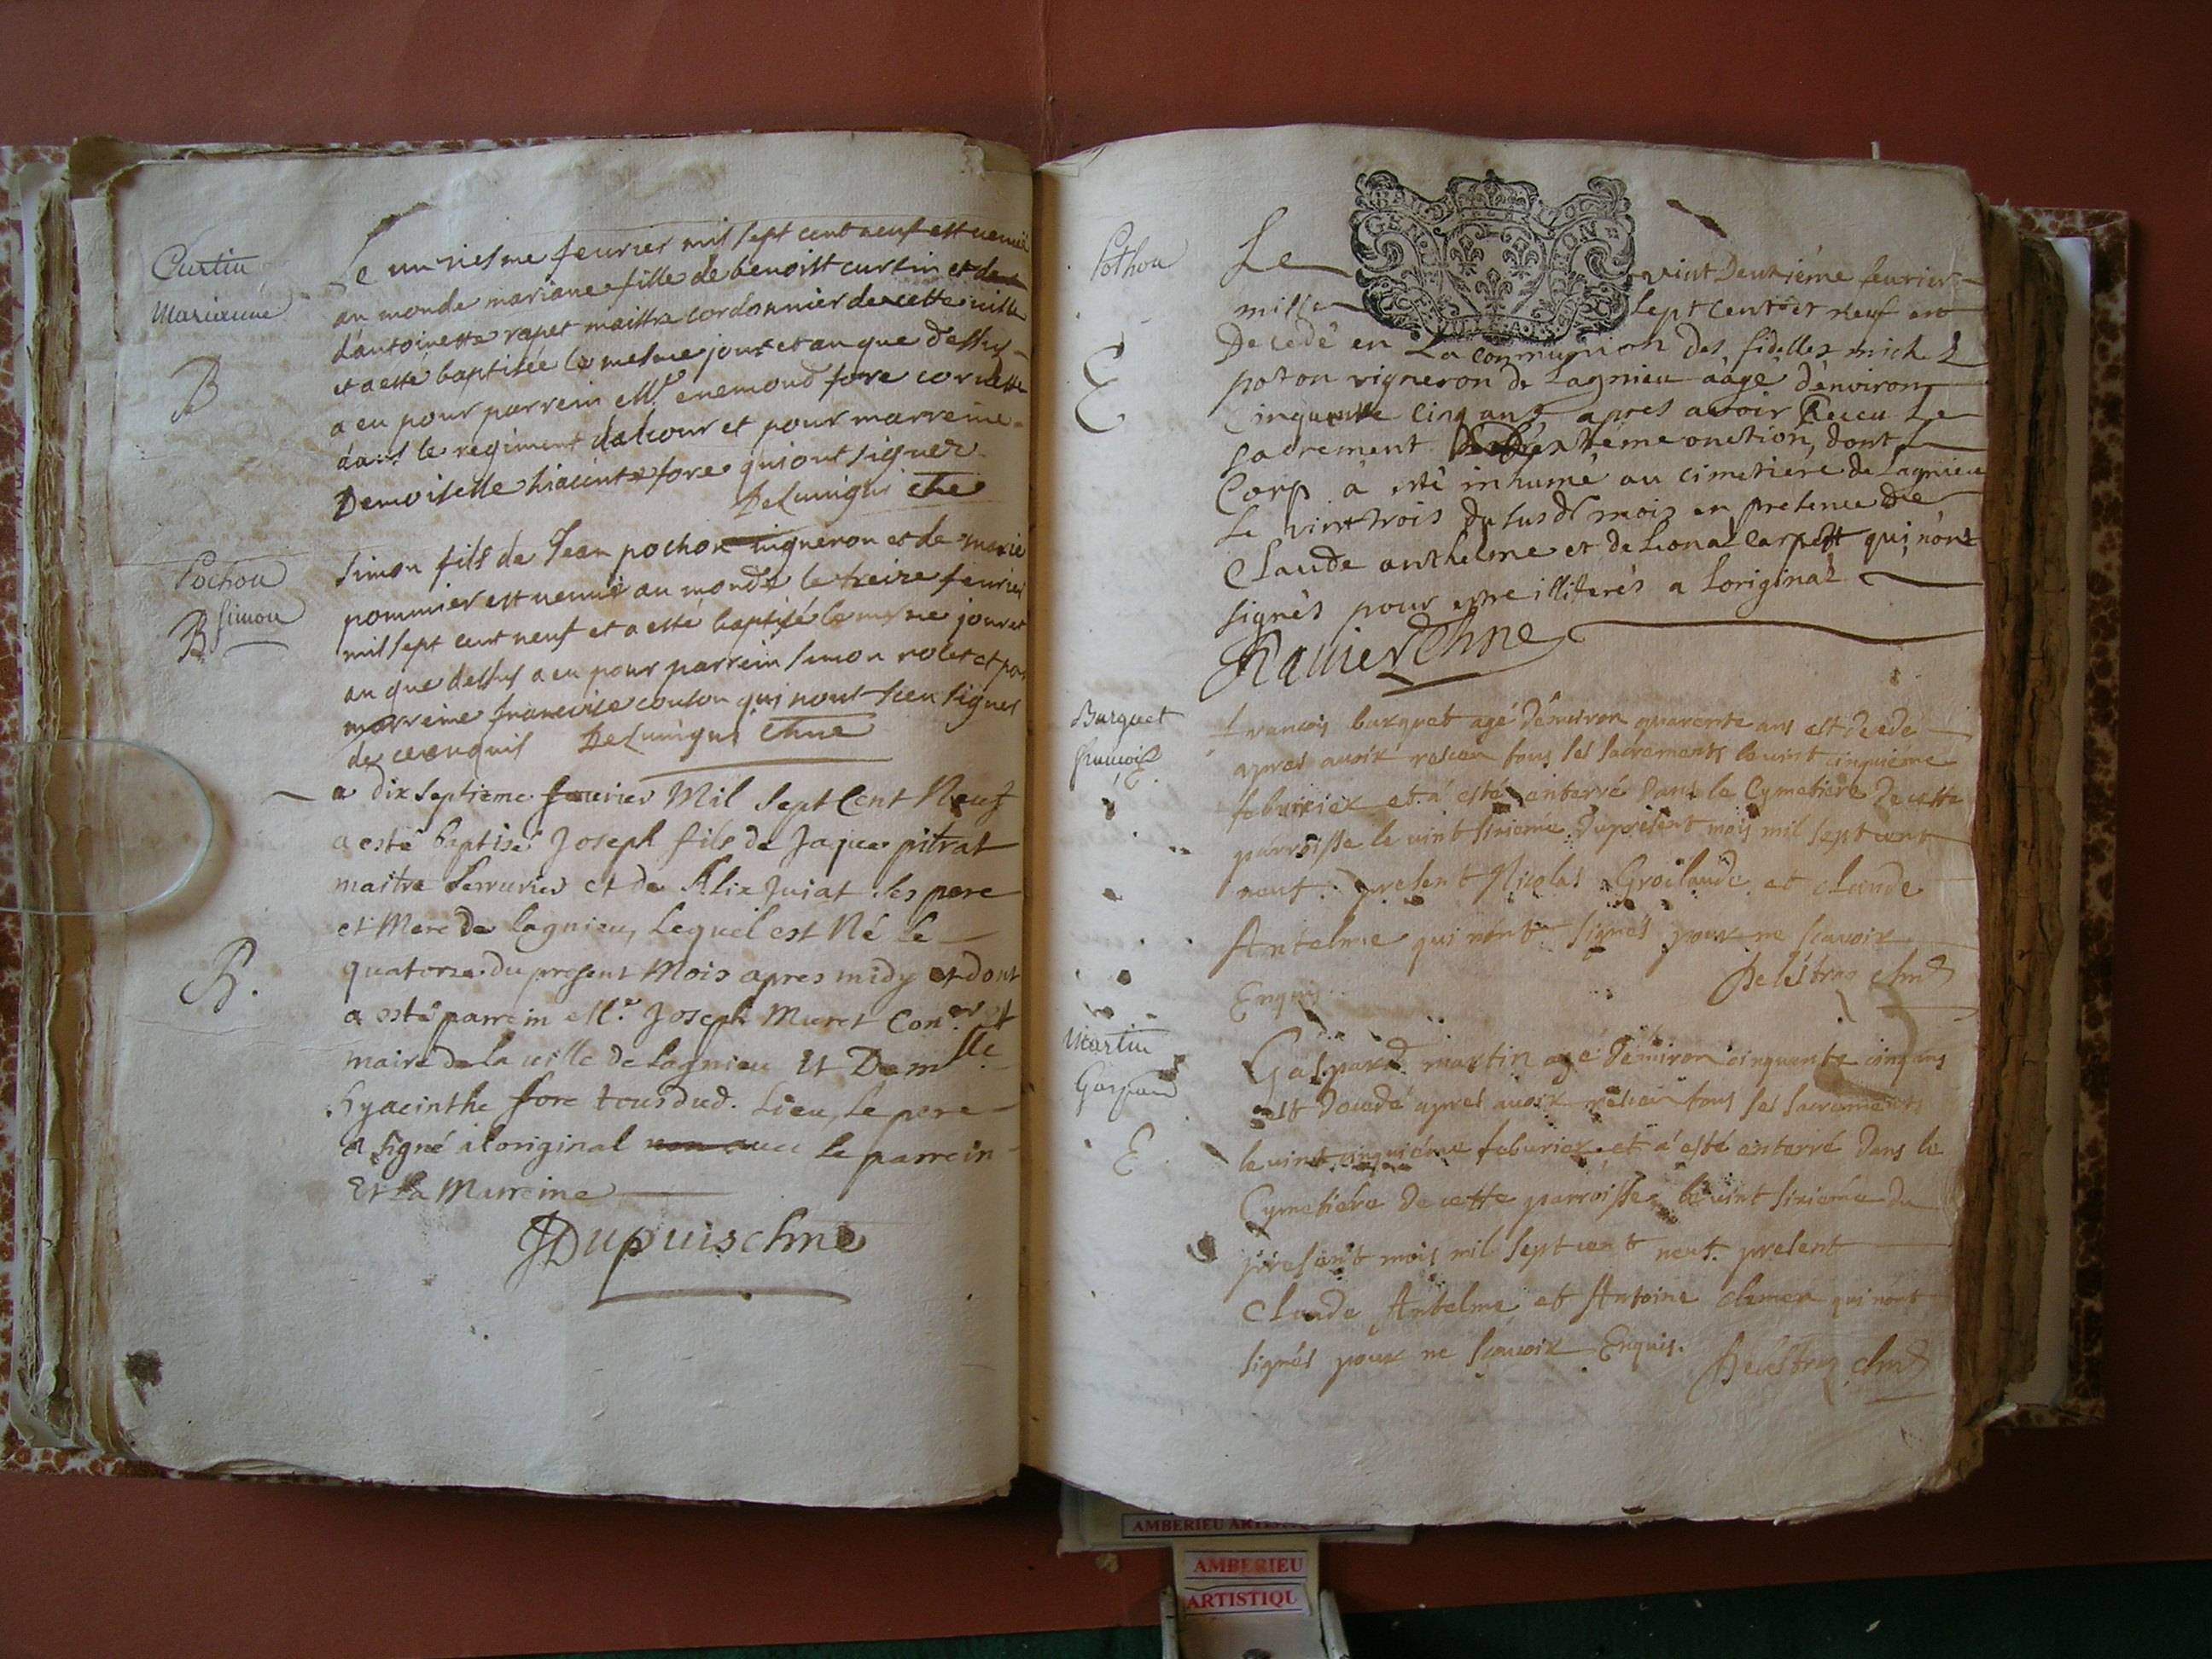 Curtin
Marianne
B
Le unziesme feurier mil sept cent neuf est venuë
au monde mariane fille de benoist curtin et de
d'antoinette rapet maistre cordonnier de cette ville
et a esté baptisée le mesme jour et an que dessus
a eu pour parrein Mr. enemond fore cornette
dans le regiment dalcour et pour marreine
Demoiselle hiacinte fore qui ont signez
Pochon
Simon
B
Simon fils de Jean pochon uigneron et de marie
pommier est uenu au monde le treize feurier
mil sept cent neuf et a esté baptisé le mesme jour et
an que dessus a eu pour parrein simon rolet et par
marreine francoise coulon qui n'ont sceu signer
de ce enquis
B.
a dix septieme feurier Mil Sept Cent Neuf
a esté baptisé Joseph fils de Jaque pitrat
maitre Serrurier et de Alix Juiat ses pere
et Mere de lagnieu, Lequel est Né le
quatorze du present Mois apres midy et dont
a esté parrein Mr. Joseph Muret Coner. et
maire de la uille de Lagnieu Et Demlle.
hyacinthe fore tous dud. Lieu, Le pere
a signé a loriginal auec le parrein
Et la Mareine
JDupuis chne
Pothon
E
GEN ON
Le vint Deuxiéme feurier
mille sept cent et neuf est
Decedé en La communion des fidelles michel
poton vigneron de Lagnieu aagé d'environ
Cinquante cinq ans apres avoir Receu Le
sacrement extreme onction, dont le
Corp a esté inhumé au cimetiere de Lagnieu
Le vint trois du susd mois en presence de
Claude anthelme et de Leonar carpett qui n'ont
signés pour estre illiterés a Loriginal
Ravier Chne
Burquet
francois
E.
francois burquet agé d'enuiron quarente ans est decedé
apres auoir resceu tous ses sacrements le uint cinquiéme
feburier et a esté enterré dans le Cymetiere de cette
parroisse le uint sixieme du present mois mil sept cent
neuf. present Nicolas Groilaude et claude
Antelme qui n'ont signés pour ne scauoir
Enquis. Delestraz chne
Martin
Gaspard
E
Gaspard martin agé d'enuiron cinquante cinq ans
est decedé apres auoir resceu tous ses sacrements
le uint cinquiéme feburier et a esté enterré dans le
Cymetiere de cette parroisse le uint sixieme du
present mois mil sept cent neuf. present
claude Antelme et Antoine clemen qui n'ont
signés pour ne scauoir Enquis. Delestraz chne
AMBERIEU
AMBERIEU
ARTISTIQU